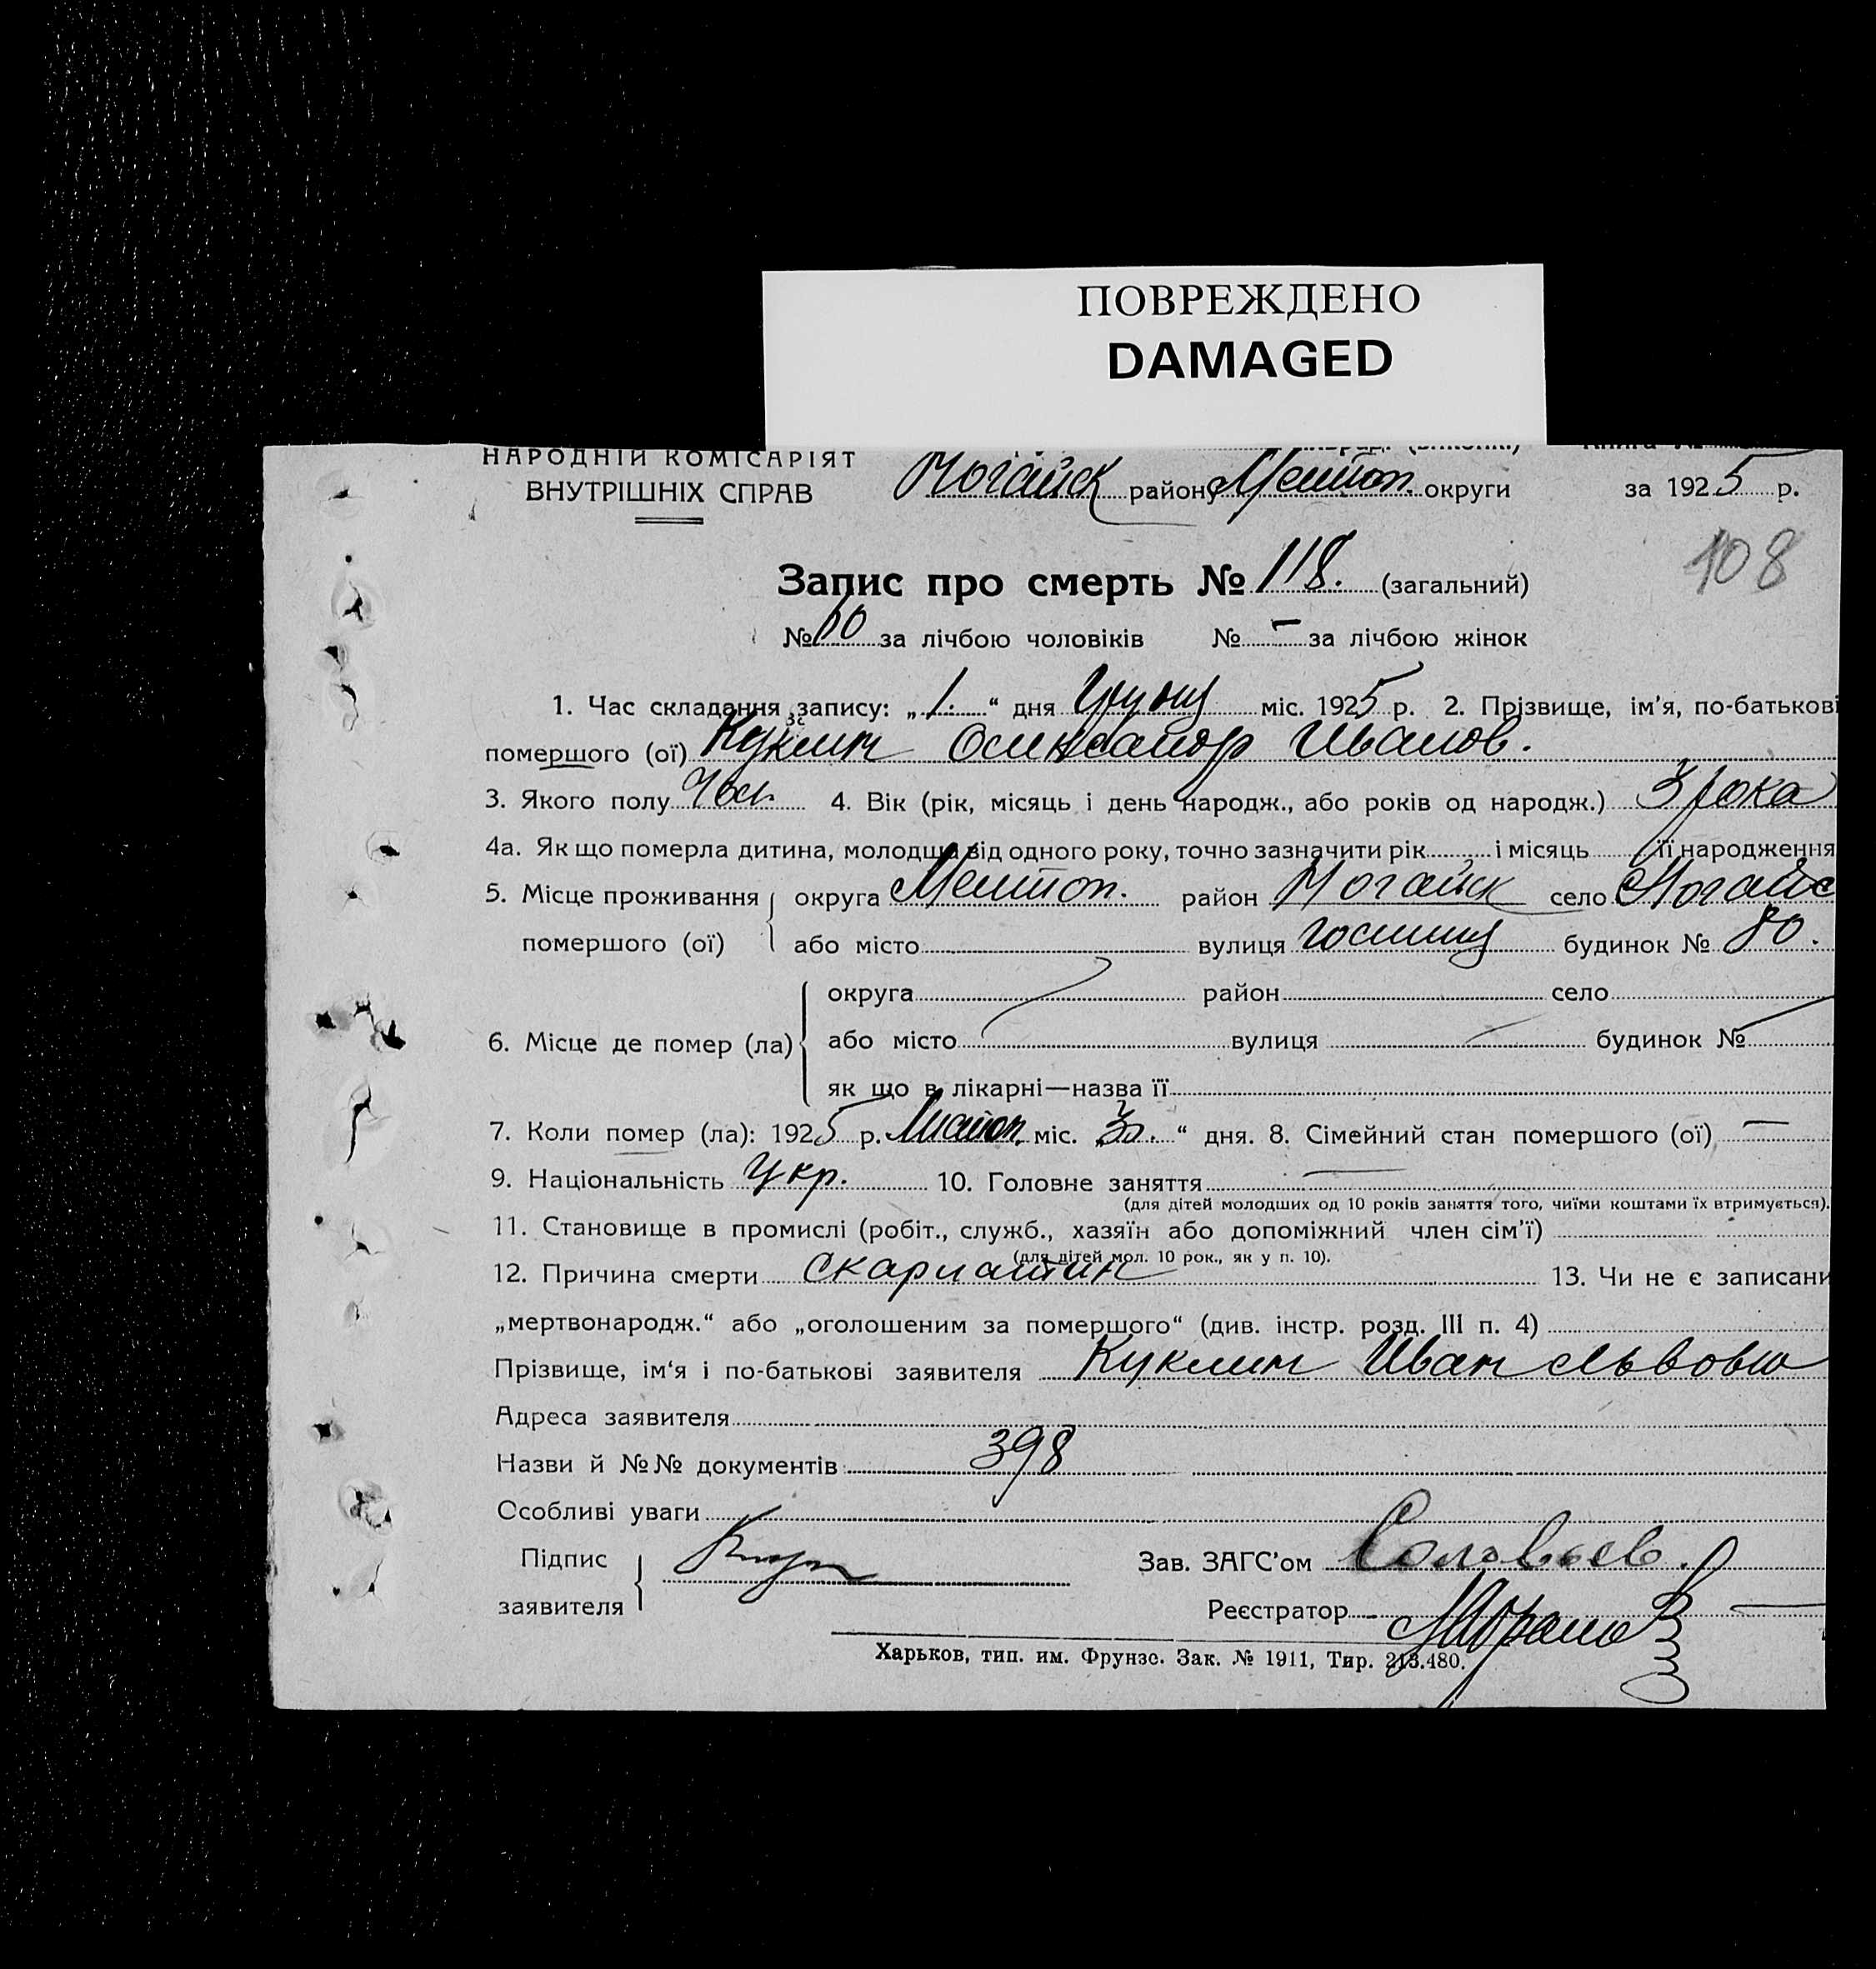 ПОВРЕЖДЕНО
DAMAGED
НАРОДНІЙ КОМІСАРІЯТ
ВНУТРІШНІХ СПРАВ
Ногайск район Мелитоп. округи за 1925 р.
108
Запис про смерть № 118. (загальний)
№ 60 за лічбою чоловіків № – за лічбою жінок
1. Час складання запису: „ 1. “ дня Грудня міс. 1925 р. 2. Прізвище, ім'я, по-батькові
помершого (ої) Куклин Олександр Иванов.
3. Якого полу Чол. 4. Вік (рік, місяць і день народж., або років од народж.) 3 рока
4а. Як що померла дитина, молодша від одного року, точно зазначити рік і місяць її народження
5. Місце проживання округа Мелитоп. район Ногайск село Ногайс
помершого (ої) або місто вулиця будинок № 80.
округа район село
6. Місце де помер (ла) або місто вулиця будинок №
як що в лікарні—назва її
7. Коли помер (ла): 1925 р. Листоп. міс. 30. “ дня. 8. Сімейний стан помершого (ої) —
9. Національність Укр. 10. Головне заняття —
(для дітей молодших од 10 років заняття того, чиїми коштами їх втримується).
11. Становище в промислі (робіт., служб., хазяїн або допоміжний член сім'ї)
(для дітей мол. 10 рок., як у п. 10).
12. Причина смерти Скарлатин 13. Чи не є записани
„мертвонародж.“ або „оголошеним за помершого“ (див. інстр. розд. III п. 4)
Прізвище, ім'я і по-батькові заявителя Куклин Иван Львович
Адреса заявителя
Назви й №№ документів 398
Особливі уваги
Підпис Зав. ЗАГС'ом Соловьев.
заявителя Реєстратор
Харьков, тип. им. Фрунзе. Зак. № 1911, Тир. 213.480.